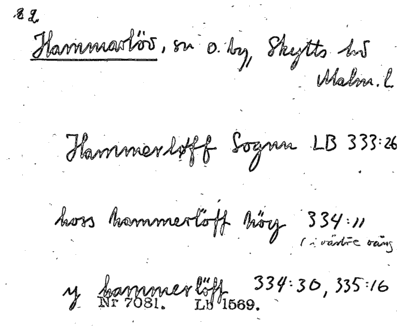 Hammarlöv, sn o. by, Skytts hd
Malm. l.
Hammerløff Sognn LB 333:26
hoss hammerlöff höy 334:11
( i västre vång
y hammerlöff 334:30, 335:16
Nr 7081. Lb 1569.